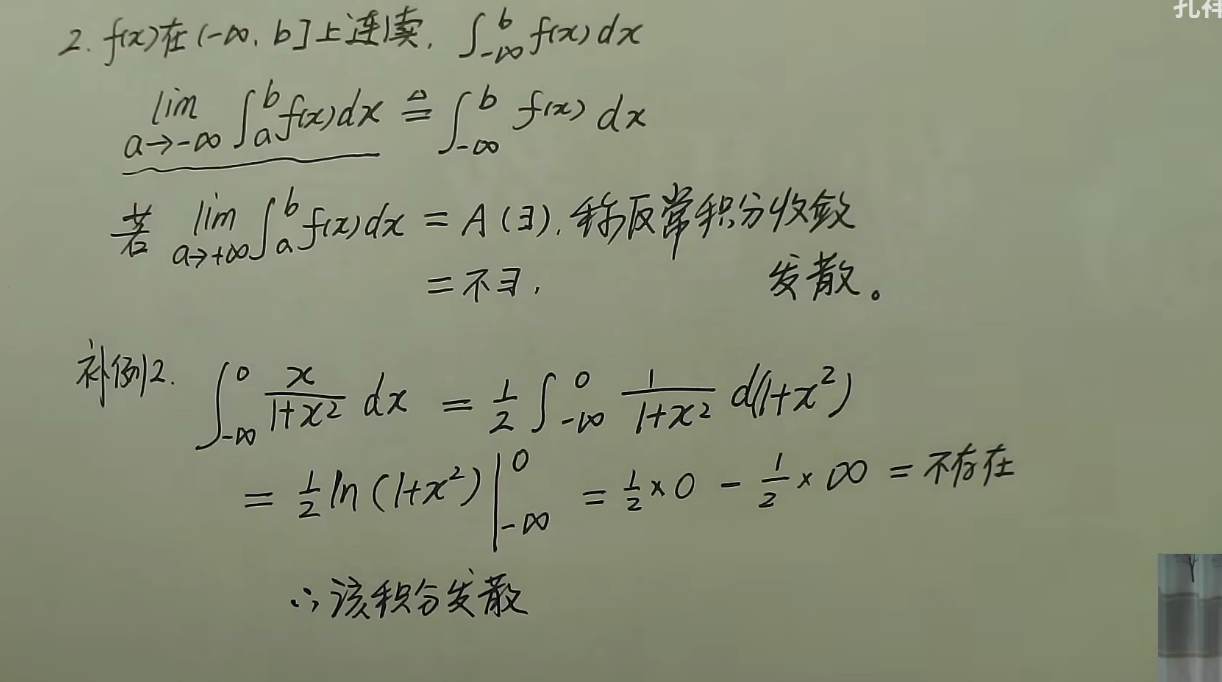 孔祥
2. f(x)在(-∞, b]上连续, ∫_{-∞}^{b} f(x) dx
lim_{a→-∞} ∫_{a}^{b} f(x) dx ≜ ∫_{-∞}^{b} f(x) dx
若 lim_{a→+∞} ∫_{a}^{b} f(x) dx = A (∃), 称反常积分收敛
= 不∃, 发散。
补例2. ∫_{-∞}^{0} x/(1+x²) dx = 1/2 ∫_{-∞}^{0} 1/(1+x²) d(1+x²)
= 1/2 ln(1+x²) |_{-∞}^{0} = 1/2 × 0 - 1/2 × ∞ = 不存在
∴ 该积分发散